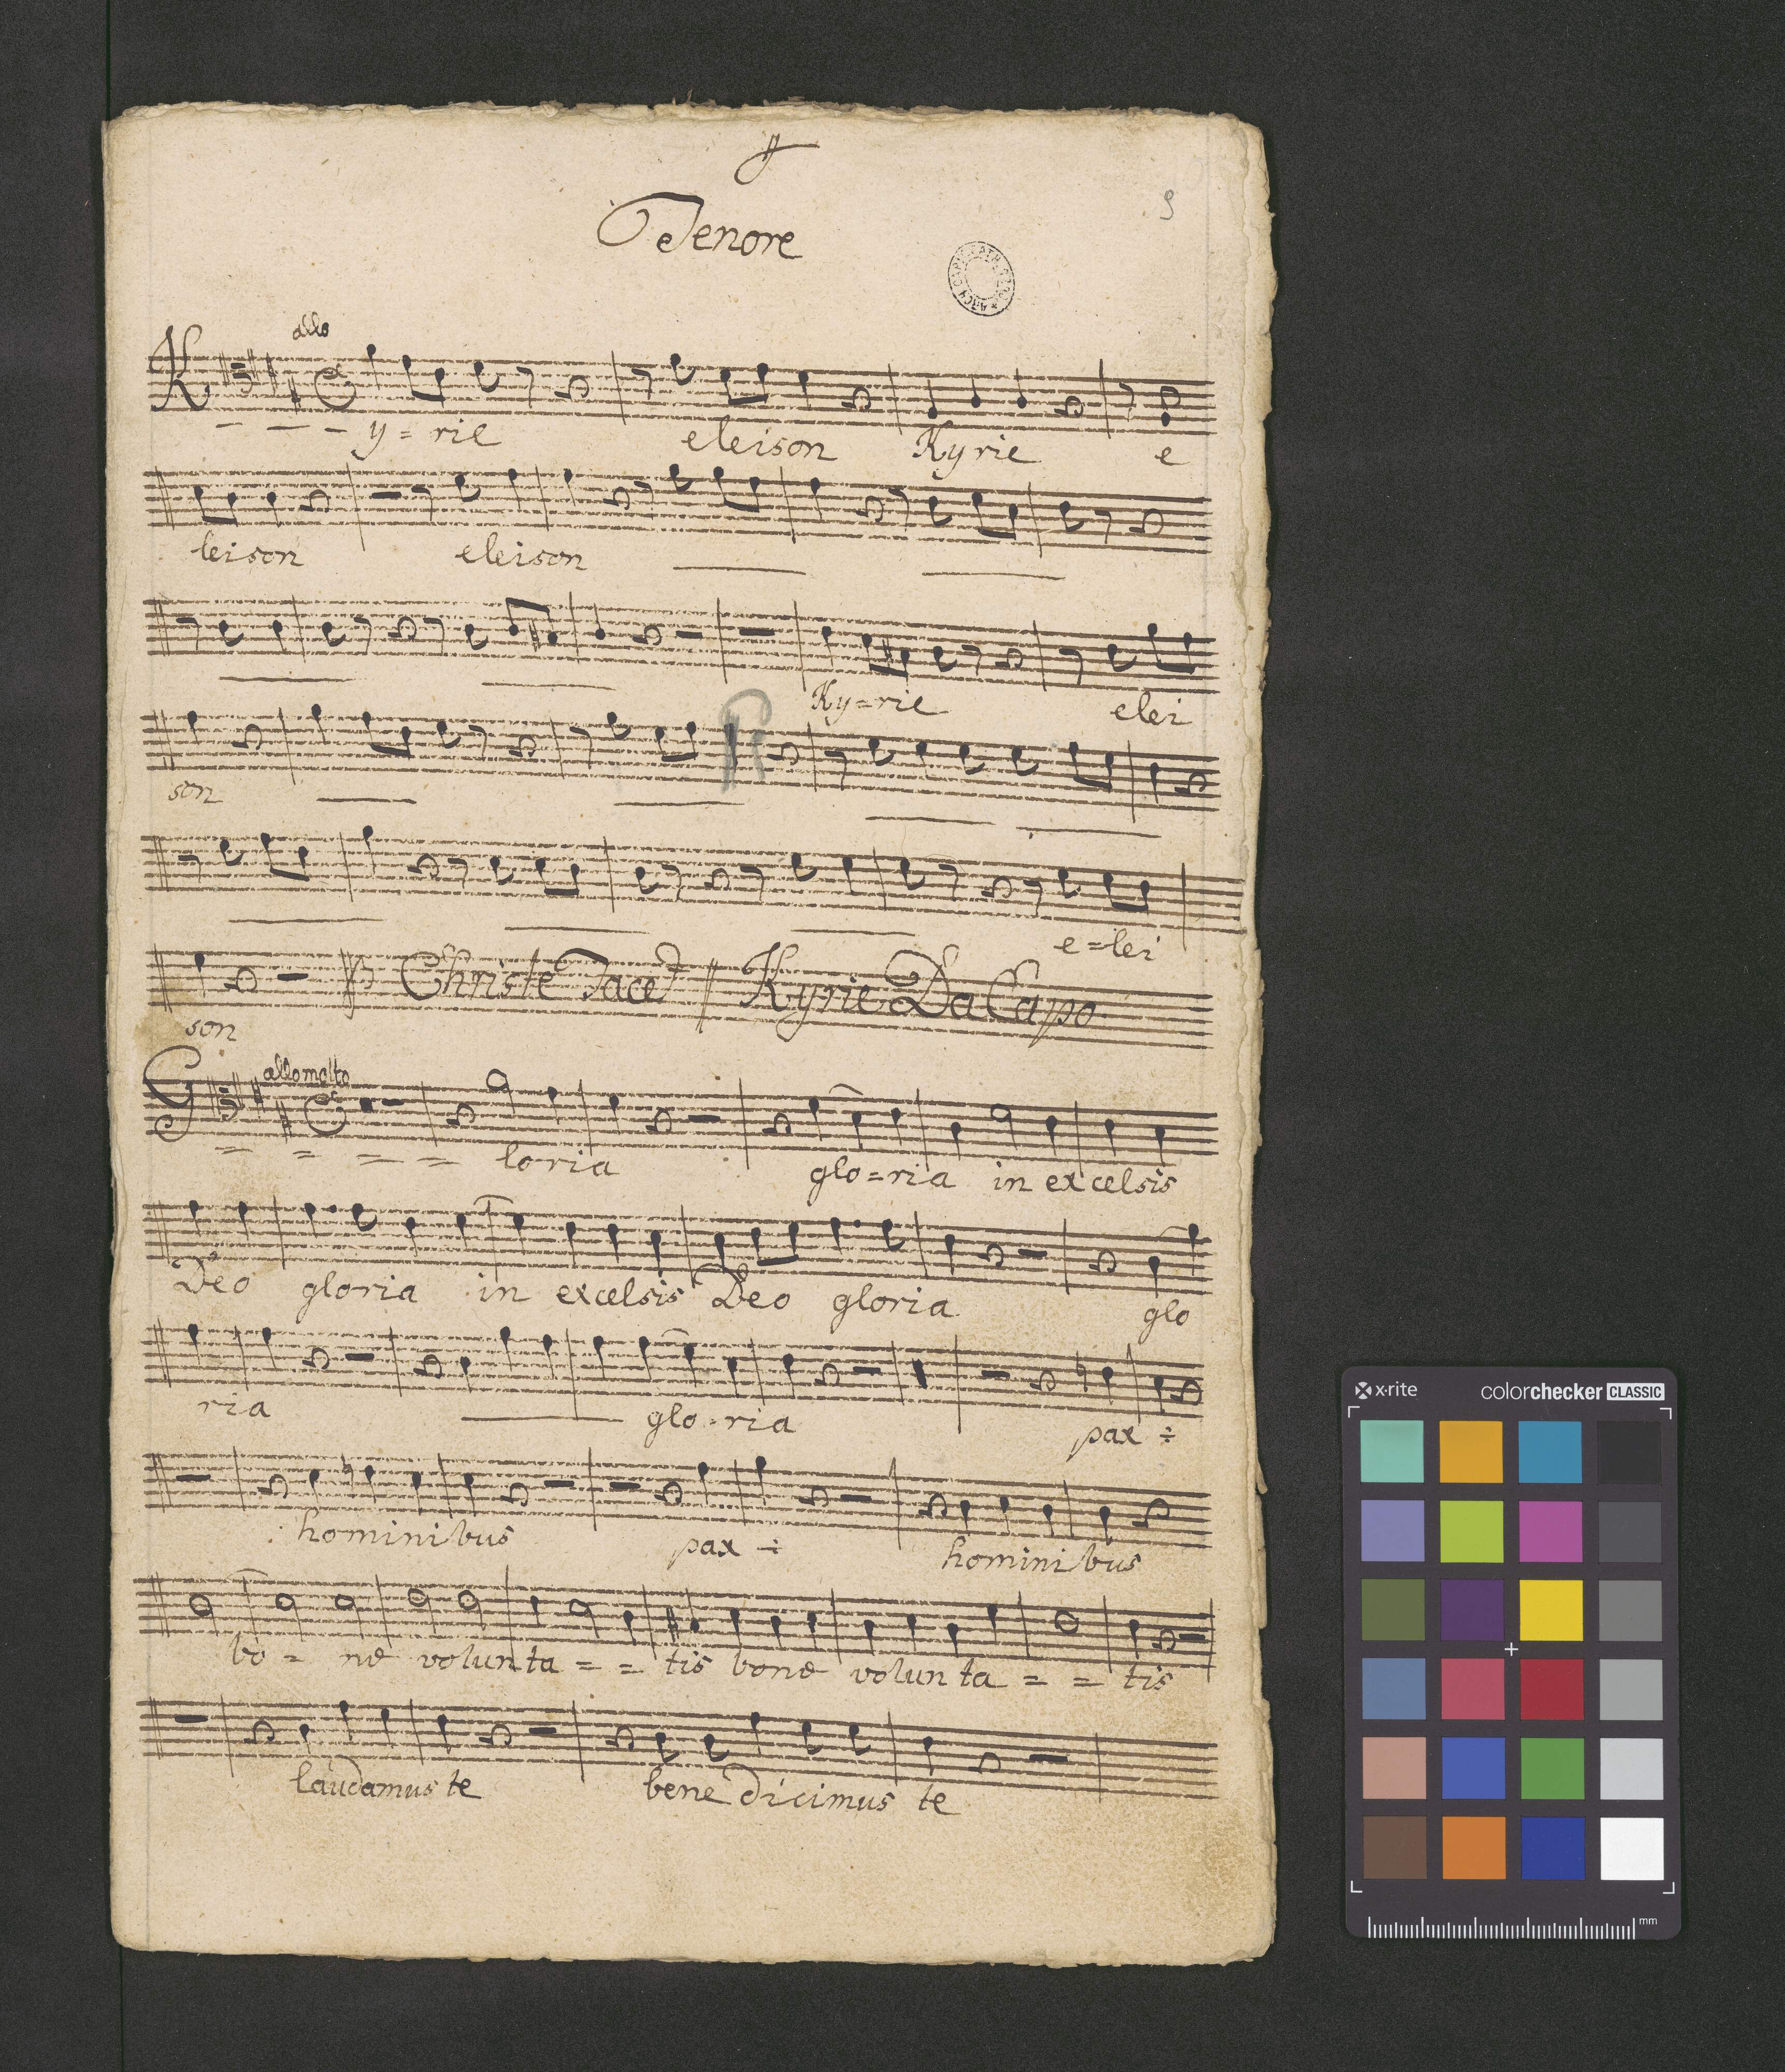 Tenore
9
allo
K - - - y = rie eleison Kyrie e
leison eleison
Ky = rie elei
son
e = lei
son Christe Tacet Kyrie Da Capo
allo molto
G = = = = loria glo = ria in excelsis
Deo gloria in excelsis Deo gloria glo
ria glo - ria pax ÷
hominibus pax ÷ hominibus
bo = næ volunta = = tis bonæ volunta = = tis
laudamus te benedicimus te
x·rite colorchecker CLASSIC
mm